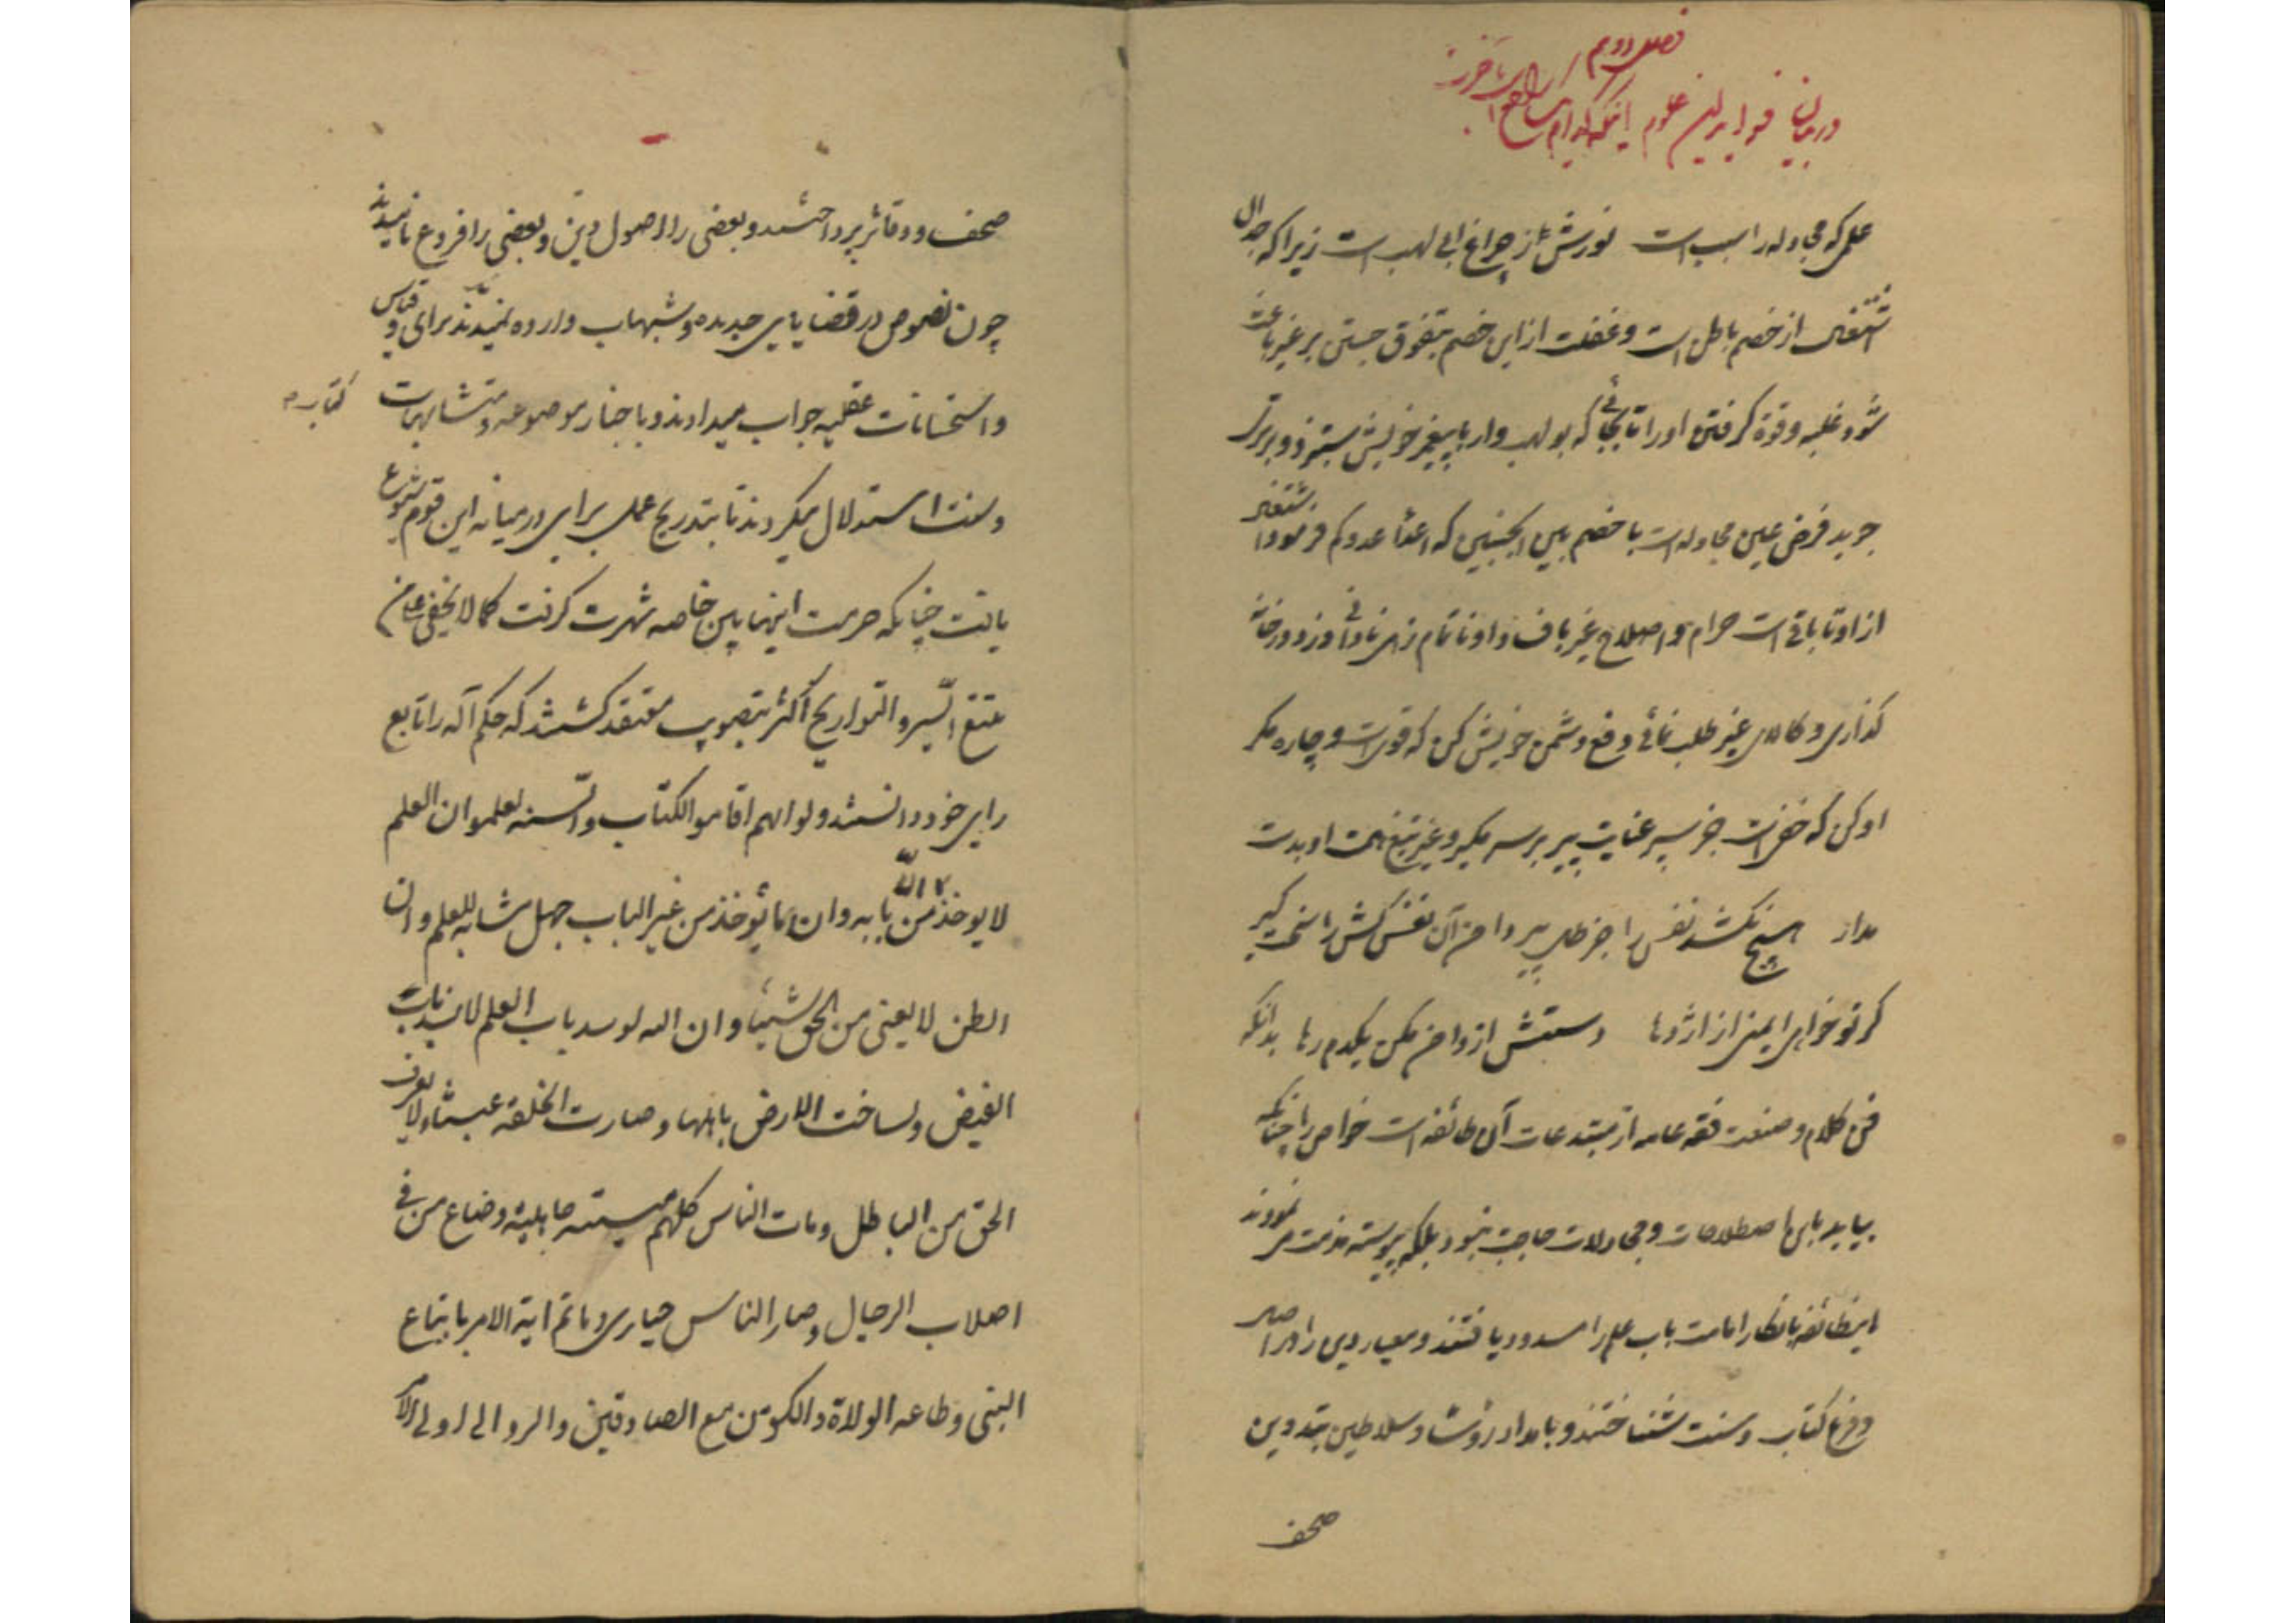 فصل دوم
در بیان فواید این علوم اینکه کدام نافع است
علمی که مجادله را سبب است نورش ز چراغ ابی لهب است زیرا که جدال
از خصم باطل است و غفلت از این خصم تفوق جستن بر غیر باعث
شود غلبه و قوة گرفتن او را تا بجائی که بولهب وار با پیغمبر خویش ستیزد و برتری
جوید فرض عین مجادله است با خصم بین الجنبین که اعدا عدوکم فرمود اشتغال
از او تا باقی است حرام و اصلاح غیر باف و او ناتمام زهی نادانی دزد در خانه
گذاری و کالای غیر طلب نمائی دفع دشمن خویش کن که قوی است و چاره مکر
او کن که خفی است جز سپر عنایت پیر بر سر مگیر و غیر تیغ همت او بدست
مدار هیچ نکشد نفس را جز ظل پیر دامن آن نفس کش را سخت گیر
گر تو خواهی ایمنی از اژدها دستش از دامن مکن یکدم رها بدانکه
فن کلام و صنعت فقه عامه از مبتدعات آن طائفه است خواص را چنانکه
بیاید باین اصطلاحات و مجادلات حاجت نبود بلکه پیوسته مذمت می نمودند
اینطائفه بانکار امامت باب علم را مسدود یافتند و معیار دین را در اصل
و فرع کتاب و سنت شناختند و بامداد رؤسا و سلاطین بتدوین
صحف
صحف و دفاتر پرداختند و بعضی را اصول دین و بعضی را فروع نامیدند
چون نصوص در قضایای جدیده و شبهات وارده ندیدند برای و قیاس
و استحسانات عقلیه جواب میدادند و باخبار موضوعه و متشابهات کتاب
و سنت استدلال میکردند تا بتدریج عمل برای در میانه این قوم شیوع
یافت چنانکه حرمت اینها بین خاصه شهرت گرفت کما لا یخفی علی من
تتبع السیر والتواریخ اکثر بتصویب معتقد گشتند که حکم آله را تابع
رای خود دانستند ولو انهم اقاموا الکتاب والسنه لعلموا ان العلم
لا یوخذ الا من بابه وان ما یؤخذ من غیر الباب جهل مشابه للعلم وان
الظن لا یغنی من الحق شیئا وان الله لو سد باب العلم لانسد باب
الفیض ولساخت الارض باهلها وصارت الخلقه عبثا ولا یعرف
الحق من الباطل ومات الناس کلهم میتته جاهلیة وضاع من فی
اصلاب الرجال وصار الناس حیاری وما تم ایة الامر باتباع
النبی وطاعه الولاة والکون مع الصادقین والرد الی اولی الامر